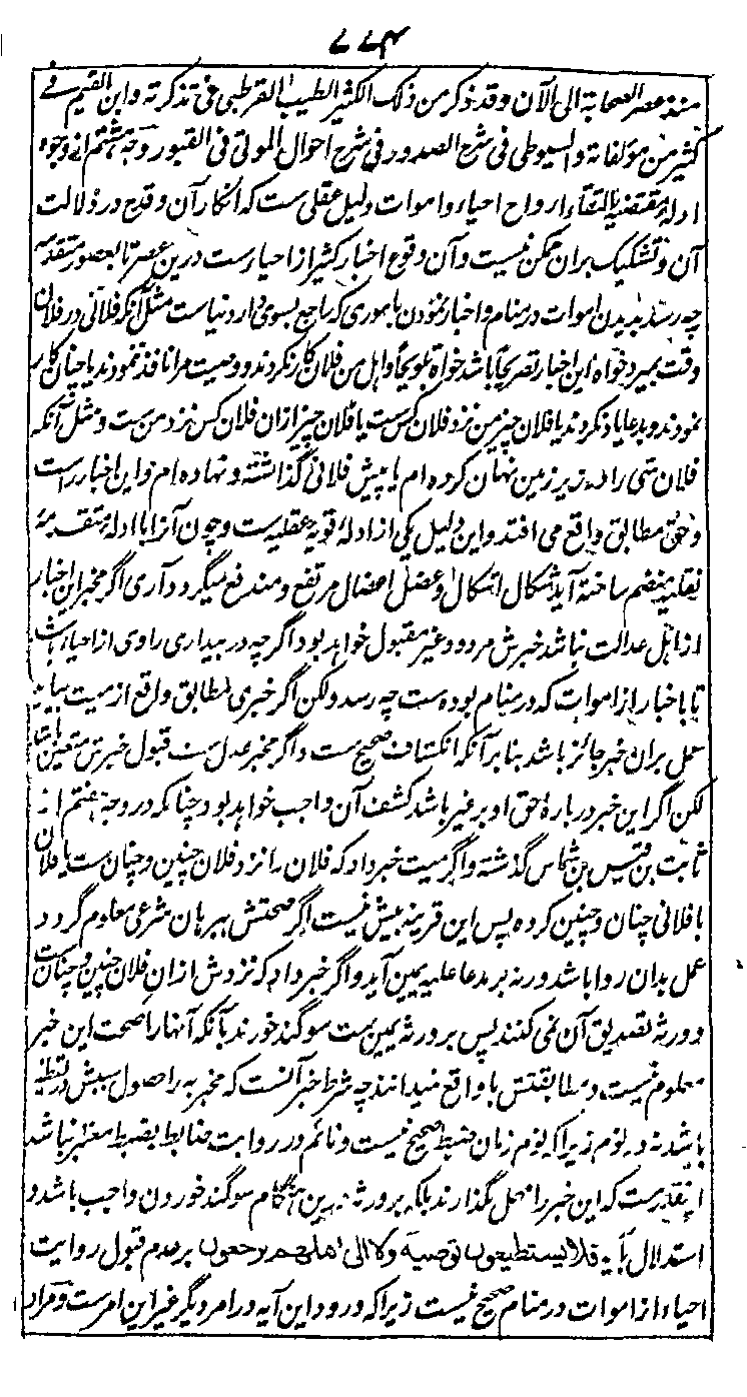 ۷۷۴
منذ عصر الصحابة الی الآن وقد ذکر من ذلک الکثیر الطیب القرطبی فی تذکرته وابن القیم فی
کثیر من مؤلفاته والسیوطی فی شرح الصدور فی شرح احوال الموتی فی القبور وجه هشتم از وجوه
ادلهٔ مقتضیه بالتقاء ارواح احیاء واموات دلیل عقلی ست که انکار آن وقدح در دلالت
آن وتشکیک بران ممکن نیست وآن وقوع اخبار کثیر از احیا ست درین عصر تا بعصور متقدمه
چه رسد بدیدن اموات در منام واخبار نمودن باموری که راجع بسوی دار دنیاست مثل آنکه فلانی در فلان
وقت بمیرد خواه این اخبار تصریحاً باشد خواه تلویحاً واهل من فلان کار نکردند ووصیت مرا نافذ ننمودند یا چنان کار
نمودند وبدعا یاد نکردند یا فلان چیز من نزد فلان کس ست یا فلان چیز ازان فلان کس نزد من ست ومثل آنکه
فلان شی را در زیر زمین نهان کرده ام یا پیش فلانی گذاشته ونهاده ام واین اخبار راست
وحق مطابق واقع می افتد واین دلیل یکی از ادلهٔ قویهٔ عقلیه ست وچون آنرا با ادلهٔ متقدمهٔ
نقلیه منضم ساخته آید اشکال اشکال وعضل اعضال مرتفع ومندفع میگردد آری اگر مخبر این اخبار
از اهل عدالت نباشد خبرش مردود وغیر مقبول خواهد بود اگرچه در بیداری راوی از احیاء باشد
تا باخبار از اموات که در منام بوده ست چه رسد ولکن اگر خبری مطابق واقع از میت بیاید
عمل بران خبر جائز باشد بنا بر آنکه انکشاف صحیح ست واگر مخبر عدل ست قبول خبرش متعین باشد
لکن اگر این خبر دربارهٔ حق او بر غیر باشد کشف آن واجب خواهد بود چنانکه در وجه هفتم از
ثابت بن قیس بن شماس گذشته واگر میت خبر داد که فلان را نزد فلان چنین وچنان ست یا فلان
با فلانی چنان وچنین کرده پس این قرینه بیش نیست اگر صحتش ببرهان شرعی معلوم گردد
عمل بدان روا باشد ورنه بر مدعا علیه یمین آید واگر خبر داد که نزدش ازان فلان چنین وچنان ست
وورثه تصدیق آن نمی کنند پس بر ورثه یمین ست سوگند خورند بآنکه آنها را صحت این خبر
معلوم نیست ومطابقتش با واقع نمیدانند چه شرط خبر آنست که مخبر به را صول سببش در یقظه
باشد نه در نوم زیرا که نوم زمان ضبط صحیح نیست ونائم در روایت ضابط بضبط معتبر نباشد
اینقدر ست که این خبر را مهمل نگذارند بلکه بر ورثه درین هنگام سوگند خوردن واجب باشد و
استدلال بآیه فلا یستطیعون توصیة ولا الی اهلهم یرجعون بر عدم قبول روایت
احیاء از اموات در منام صحیح نیست زیرا که ورود این آیه در امر دیگر غیر این امر ست ومراد